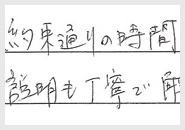 約束通りの時間
説明も丁寧で